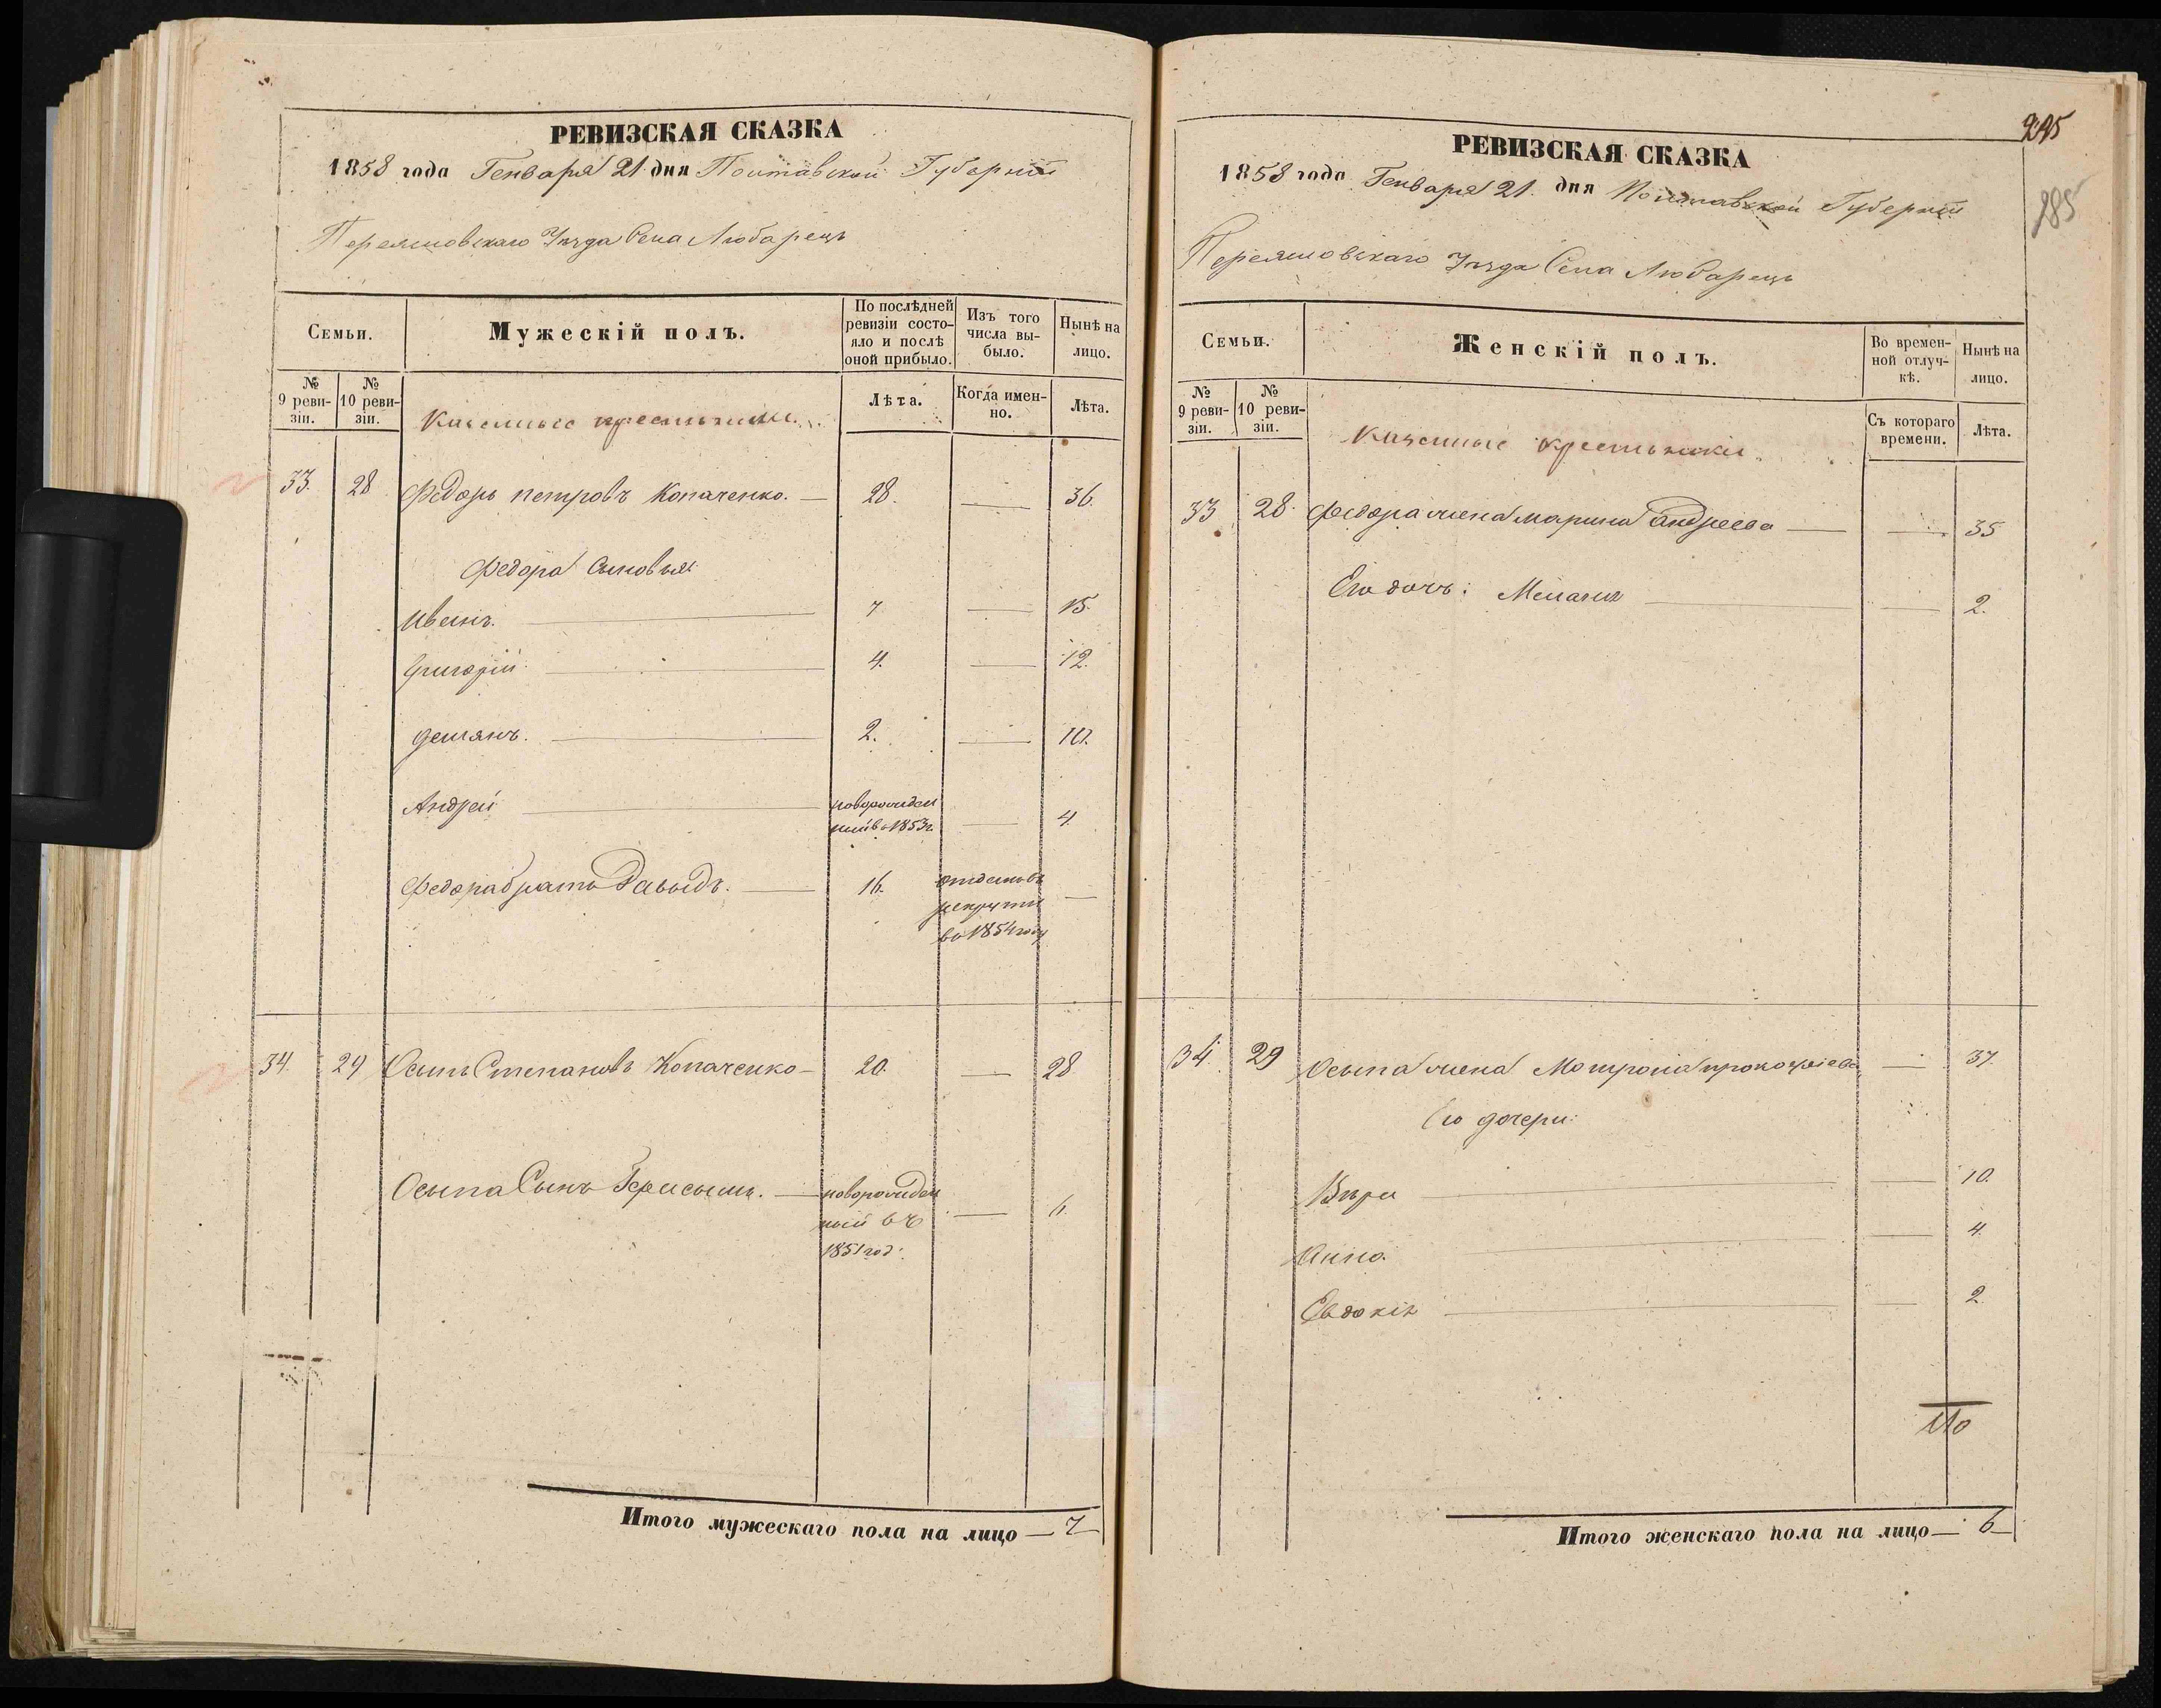 РЕВИЗСКАЯ СКАЗКА
1858 года Генваря 21 дня Полтавской Губерніи
Переяславскаго Уѣзда Села Любарецъ
Семьи.
Мужескій полъ.
По послѣдней ревизіи состо-
яло и послѣ оной прибыло.
Изъ того числа вы-
было.
Нынѣ на лицо.
№ 9 реви-
зіи.
№ 10 реви-
зіи.
Казенные крестьянин.
Лѣта.
Когда имен-
но.
Лѣта.
33. 28 Федоръ петровъ Копаченко. — 28. — 36.
Федора Сыновья:
Иванъ. — 7. — 15.
Григорій — 4. — 12.
Демянъ. — 2. — 10.
Андрей — новорожден
ный въ 1853 г. — 4.
Федора братъ Давыдъ. — 16. отданъ въ
рекруты
въ 1854 году —
34. 29 Осипъ Степановъ Копаченко — 20. — 28.
Осипа Сынъ Герасимъ. — новорожден
ный въ
1851 год: — 6.
Итого мужескаго пола на лицо — 7 —
245
285
РЕВИЗСКАЯ СКАЗКА
1858 года Генваря 21. дня Полтавской Губерніи
Переяславскаго Уѣзда Села Любарецъ
Семьи.
Женскій полъ.
Во времен-
ной отлуч-
кѣ.
Нынѣ на лицо.
№ 9 реви-
зіи.
№ 10 реви-
зіи.
Казенные крестьянки.
Съ котораго времени.
Лѣта.
33 28. Федора жена марина Андреева — — 35
Его дочь: Меланія — — 2.
34. 29 Осипа жена Мотрона прокофіева — 37.
Его дочери:
Вѣра — — 10.
Анна. — — 4.
Евдокія — — 2
Итого женскаго пола на лицо — 6 —